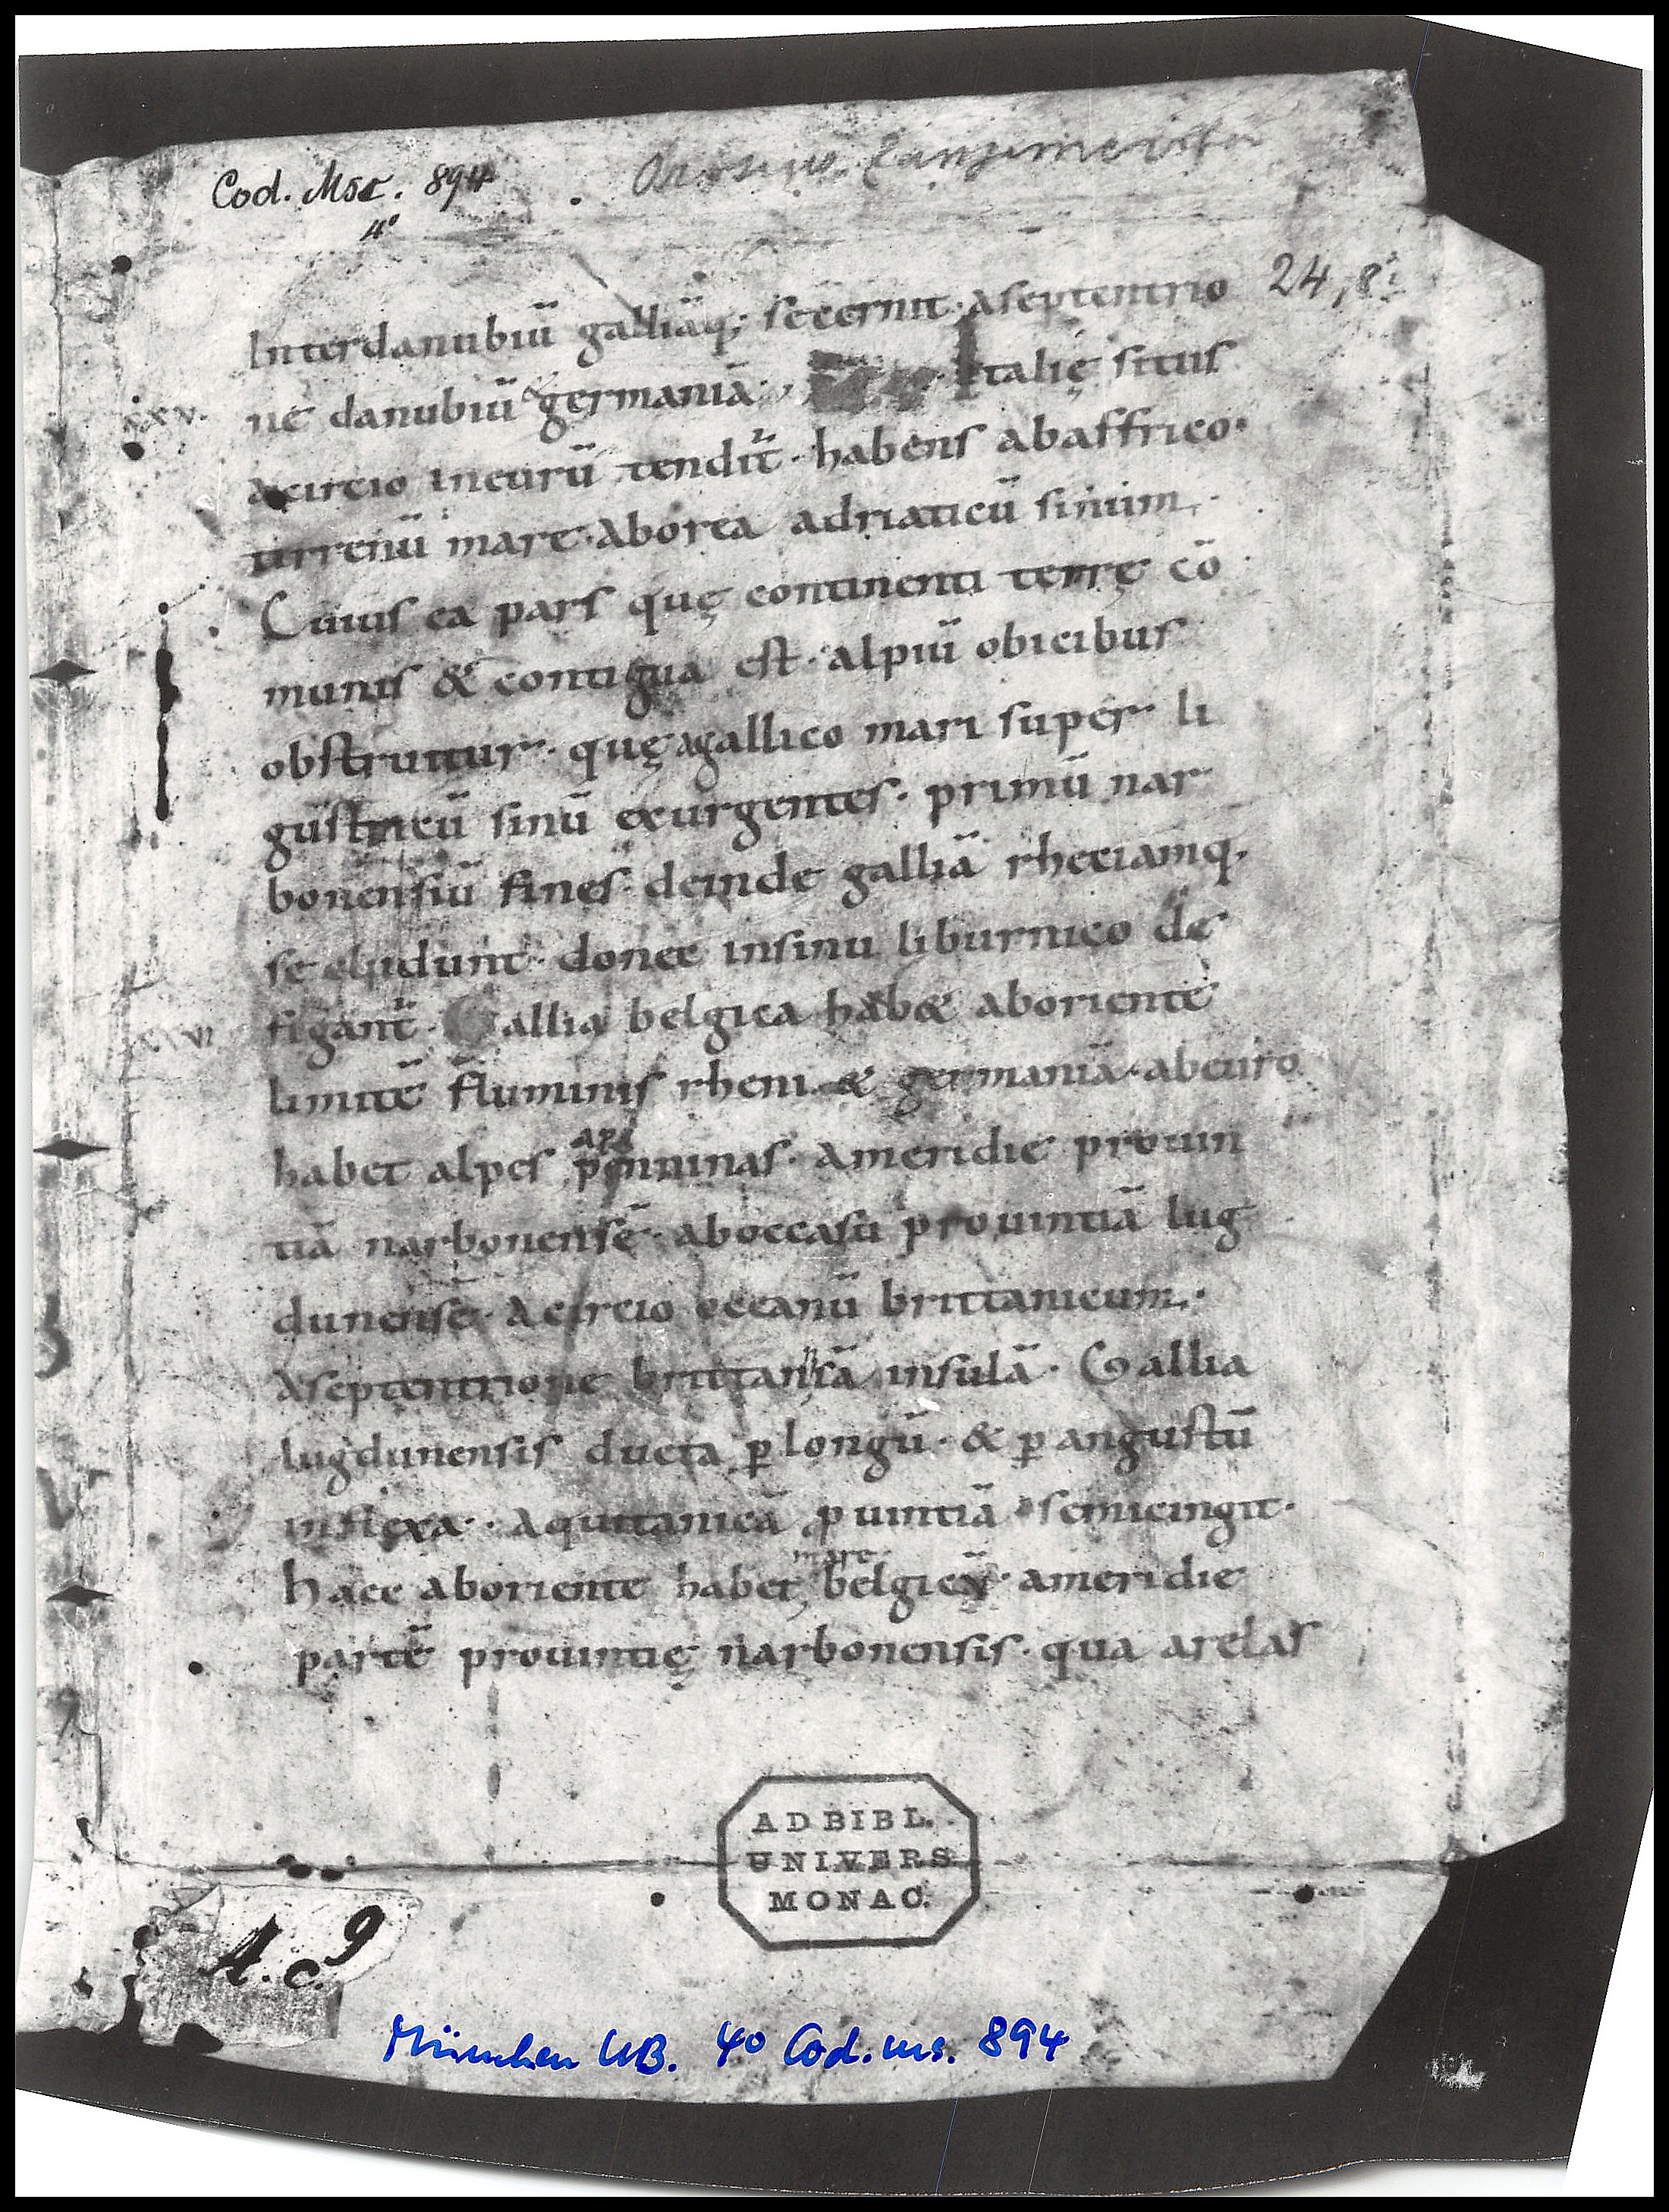 Cod. Msc. 894
4°
Orosius. Zangemeister
24, 8
Inter danubiū galliāq; secernit · A septentrio
ne danubiū & germaniā · Italię situs
xxv.
A circio in eurū tendit̄ · habens ab affrico ·
tirrenū mare · A borea adriaticū sinum ·
Cuius ea pars quę continenti terrę cō
munis & contigua est · alpiū obicibus
obstruitur · quę a gallico mari super li
gusticū sinū exurgentes · primū nar
bonensiū fines · deinde galliā rhetiamq,
secludunt · donec in sinu liburnico de
figant̄ · Gallia belgica hab& ab oriente
xxvi
limitē fluminis rheni & germaniā · ab euro
habet alpes penninas · A meridie prouin
ape
tiā narbonensē · ab occasu prouintiā lug
dunensē · A circio occanū brittanicum ·
A septentrione brittaniā insulā · Gallia
lugdunensis ducta ꝑ longū · & ꝑ angustū
inflexa · Aquitanicā ꝓuintiā semicingit ·
mare
Haec ab oriente habet belgicā · a meridie
partē prouintię narbonensis · qua arelas
AD BIBL.
UNIVERS
MONAC.
A. c. 9
München UB. 4° Cod. ms. 894